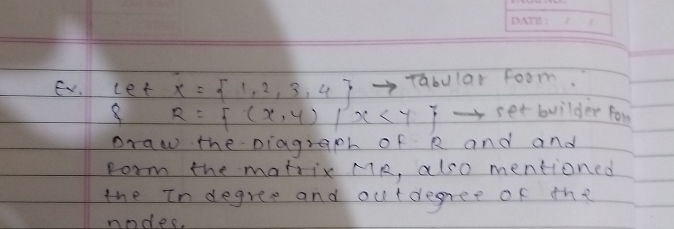 DATE: / /
Ex. Let X = { 1, 2, 3, 4 } → Tabular Form.
& R = { (x, y) / x < y } → set builder Form
Draw the Diagraph OF R and and
Form the matrix MR, also mentioned
the In degree and outdegree OF the
nodes.